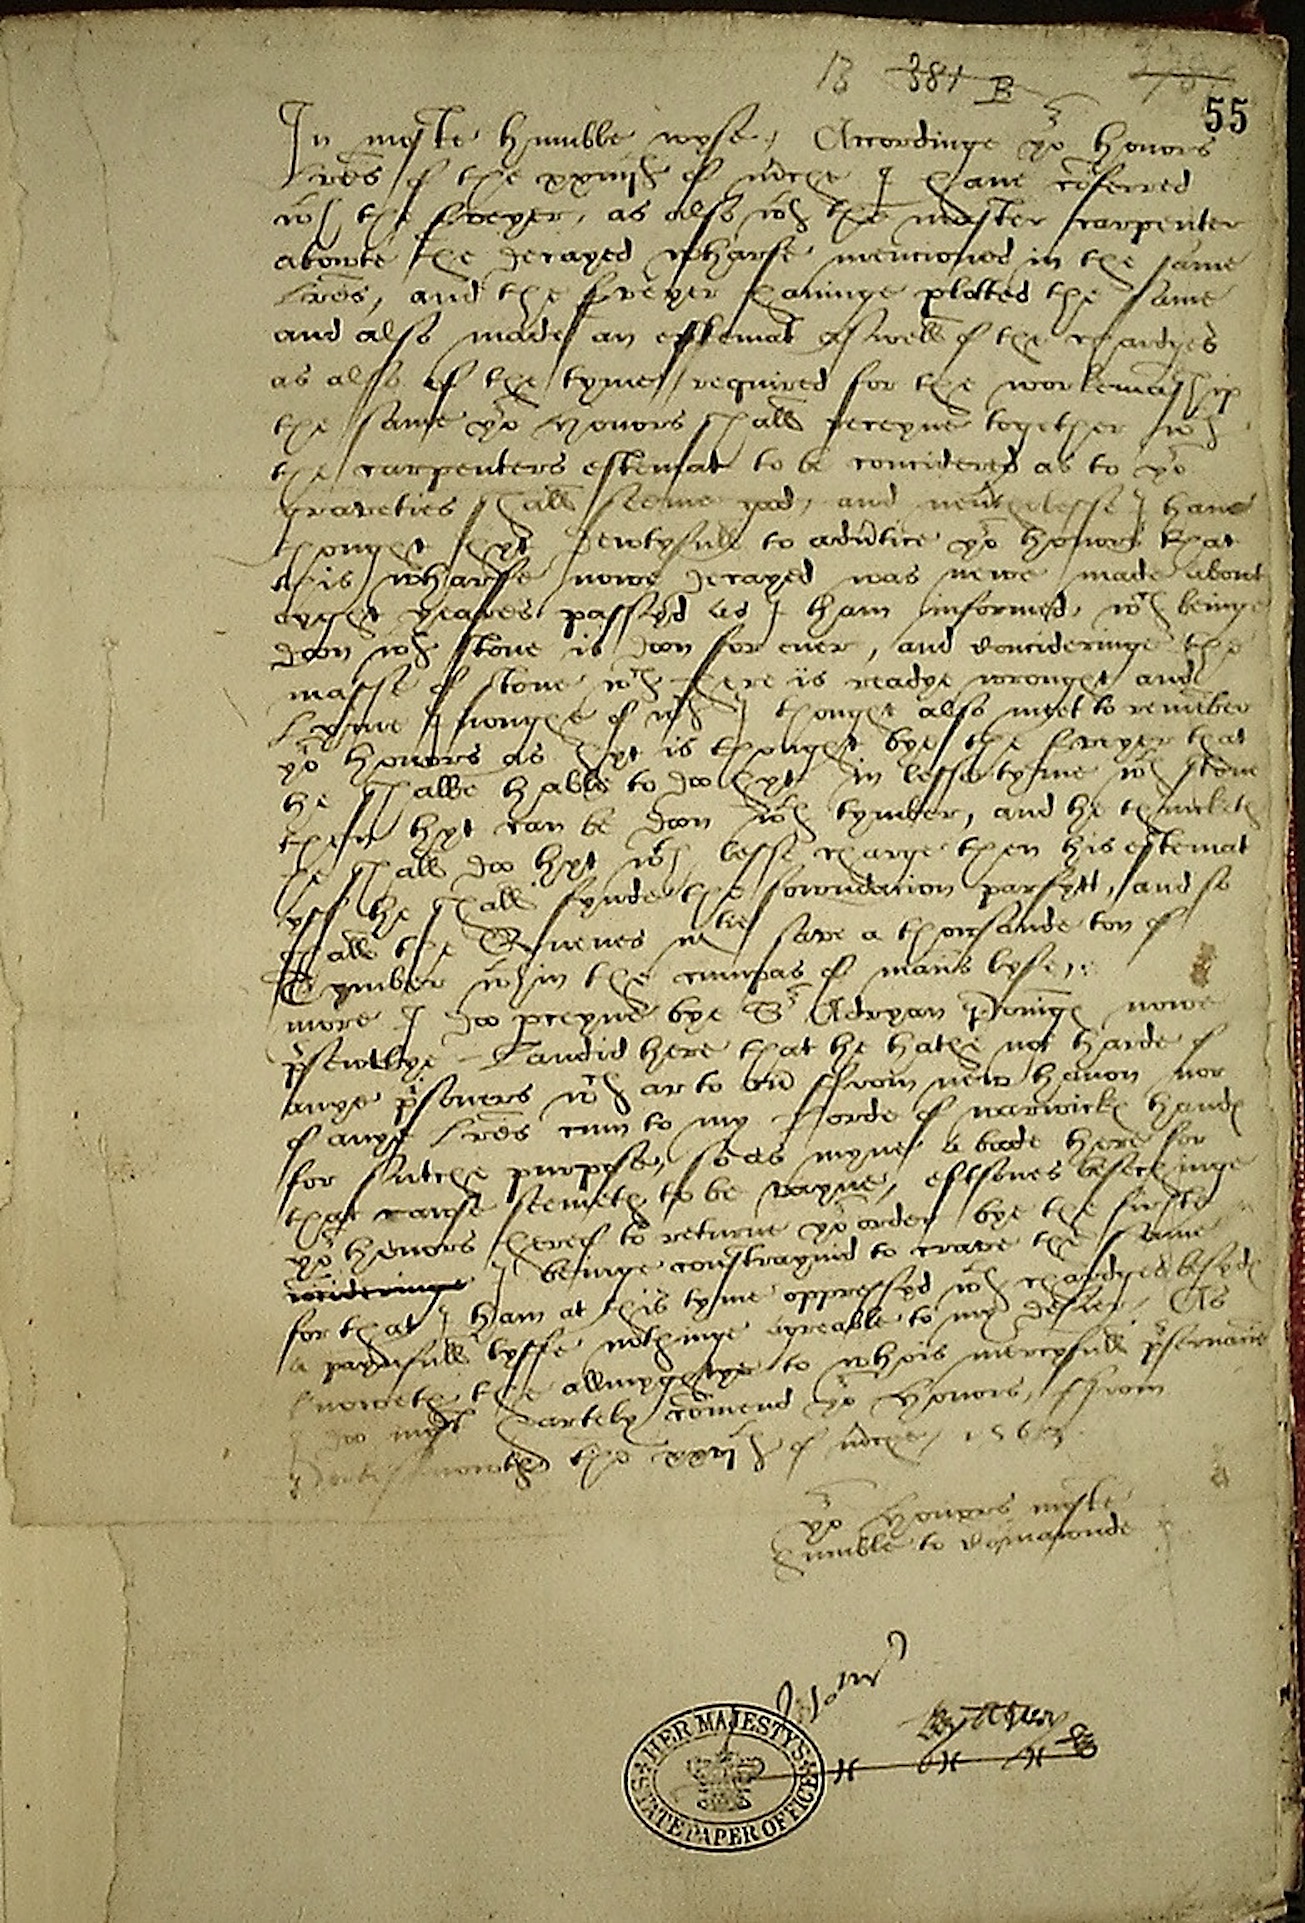 B 381 B
55
In moste humble wyse, Accordinge yor honors
lres of the xxiiijth of m̃che I haue cõferred
wth the Freyer, as also wth the master carpenter
abowte the decayed wharfe mencioned in the same
lres, and the Freyer hauinge platted the same
and also made an estemat aswell of the chardges
as also of the tyme required for the workemãship
the same yor honors shall receyue together wth
the carpenters estemat to be concidered as to yor
graveties shall seeme good, and neũthelesse I haue
thought hyt dewtyfull to adũtice yor honors that
this wharffe nowe decayed was newe made about
eyght yeares passyd as I ham informed, wch beinge
doon wth stone is doon for ever, and concideringe the
masse of stone wch here is readye wrought and
lyme I noughe of wch I thought also meet to remẽber
yor honors as hyt is thought bye the Freyer that
he shalbe hable to doo hyt in lesse tyme wth stone
then hyt can be doon wth tymber, and he thincketh
he shall doo hyt wth lesse charge then his estemat
yff he shall fynde the fowndacion parfytt, and so
shall the Quenes matie save a thowsande ton of
Tymber wthin the cumpas of mans lyfe,:
more I doo pceyue bye Sr Adryan Poinĩges nowe
p̃sentlye Landid here that he hathe not harde of
anye p̃soners wch ar to cũ ffrom new hauon nor
of anye lres cum to my Lorde of warwickes handes
for sutche purpose, so as myne a boode here for
that cawse seemeth to be vayne, eftsones besechinge
yor honors herof to returne yor order bye the firste
concideringe I beinge constraynid to crave the same
for that I ham at this tyme oppressyd wth chardges besydes
a paynfull lyffe nothinge agreable to my desier, As
knoweth the allmyghtye to whois mercyfull p̃servacõn
I doo most hartely cõmend yor honors, ffrom
Portesmowthe the xxvjth of m̃che, 1563.
yor honors moste
humble to cõmawnde
HER MAJESTYS STATE PAPER OFFICE